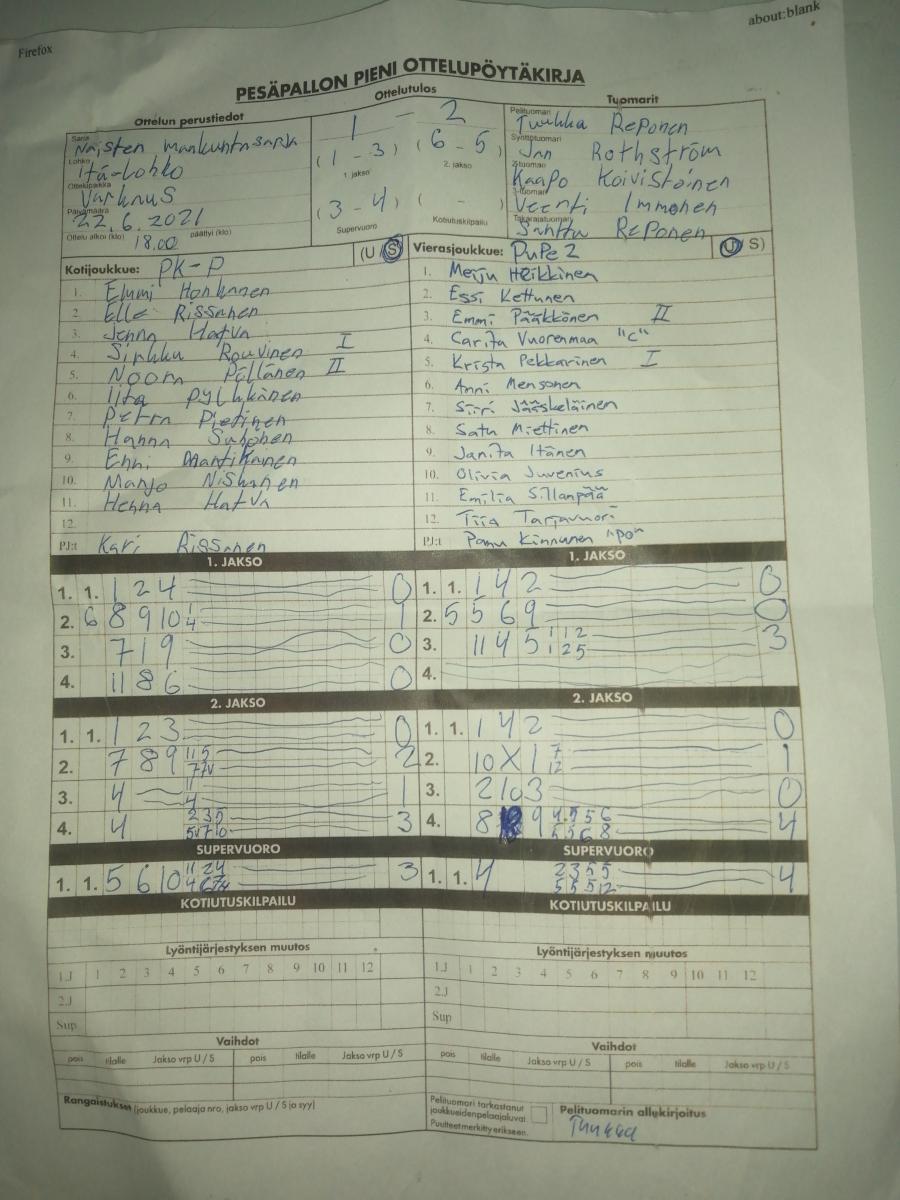 Firefox
about:blank
PESÄPALLON PIENI OTTELUPÖYTÄKIRJA
Ottelun perustiedot
Ottelutulos
Tuomarit
Sarja
Naisten maakuntasarja
Lohko
Itä-Lohko
Ottelupaikka
Varkaus
Päivämäärä
22.6.2021
Ottelu alkoi (klo) 18.00 päättyi (klo)
1 - 2
(1 - 3) (6 - 5)
1. jakso 2. jakso
(3 - 4) ( - )
Supervuoro Kotiutuskilpailu
Pelituomari
Tuukka Reponen
Syöttötuomari
Jan Rothström
2-tuomari
Kaapo Koivistoinen
3-tuomari
Veerti Immonen
Takarajatuomari
Santtu Reponen
Kotijoukkue: PK-P (U S)
1. Emmi Honkanen
2. Elle Rissanen
3. Jenna Hatva
4. Sirkku Rouvinen I
5. Noora Pöllänen II
6. Iita Pylkkänen
7. Petra Pietinen
8. Hanna Suhonen
9. Enni Martikainen
10. Marjo Niskanen
11. Henna Hatva
12.
PJ:t Kari Rissanen
Vierasjoukkue: PuPe 2 (U S)
1. Merju Heikkinen
2. Essi Kettunen
3. Emmi Pääkkönen II
4. Carita Vuorenmaa "C"
5. Krista Pekkarinen I
6. Anni Mensonen
7. Siiri Jääskeläinen
8. Satu Miettinen
9. Janita Itänen
10. Olivia Juvenius
11. Emilia Sillanpää
12. Tiia Tarjavuori
PJ:t Panu Kinnunen "po"
1. JAKSO
1. 1. 1 2 4 0
2. 6 8 9 10 1 4 1
3. 7 1 9 0
4. 11 8 6 0
1. JAKSO
1. 1. 1 4 2 0
2. 5 5 6 9 0
3. 11 4 5 1 1 2 1 2 5 3
4.
2. JAKSO
1. 1. 1 2 3 0
2. 7 8 9 2
3. 4 11 4 1
4. 4 2 3 5 5 7 10 3
2. JAKSO
1. 1. 1 4 2 0
2. 10 X 1 7 12 1
3. 2 10 3 0
4. 8 9 4 5 5 6 5 5 6 8 4
SUPERVUORO
1. 1. 5 6 10 3
SUPERVUORO
1. 1. 4 2 3 5 5 5 5 5 12 4
KOTIUTUSKILPAILU
KOTIUTUSKILPAILU
Lyöntijärjestyksen muutos
1.J 1 2 3 4 5 6 7 8 9 10 11 12
2.J
Sup
Lyöntijärjestyksen muutos
1.J 1 2 3 4 5 6 7 8 9 10 11 12
2.J
Sup
Vaihdot
pois tilalle Jakso vrp U / S pois tilalle Jakso vrp U / S
Vaihdot
pois tilalle Jakso vrp U / S pois tilalle Jakso vrp U / S
Rangaistukset (joukkue, pelaaja nro, jakso vrp U / S ja syy)
Pelituomari tarkastanut
joukkueiden pelaajaluvat
Puutteet merkitty erikseen.
Pelituomarin allekirjoitus
Tuukka